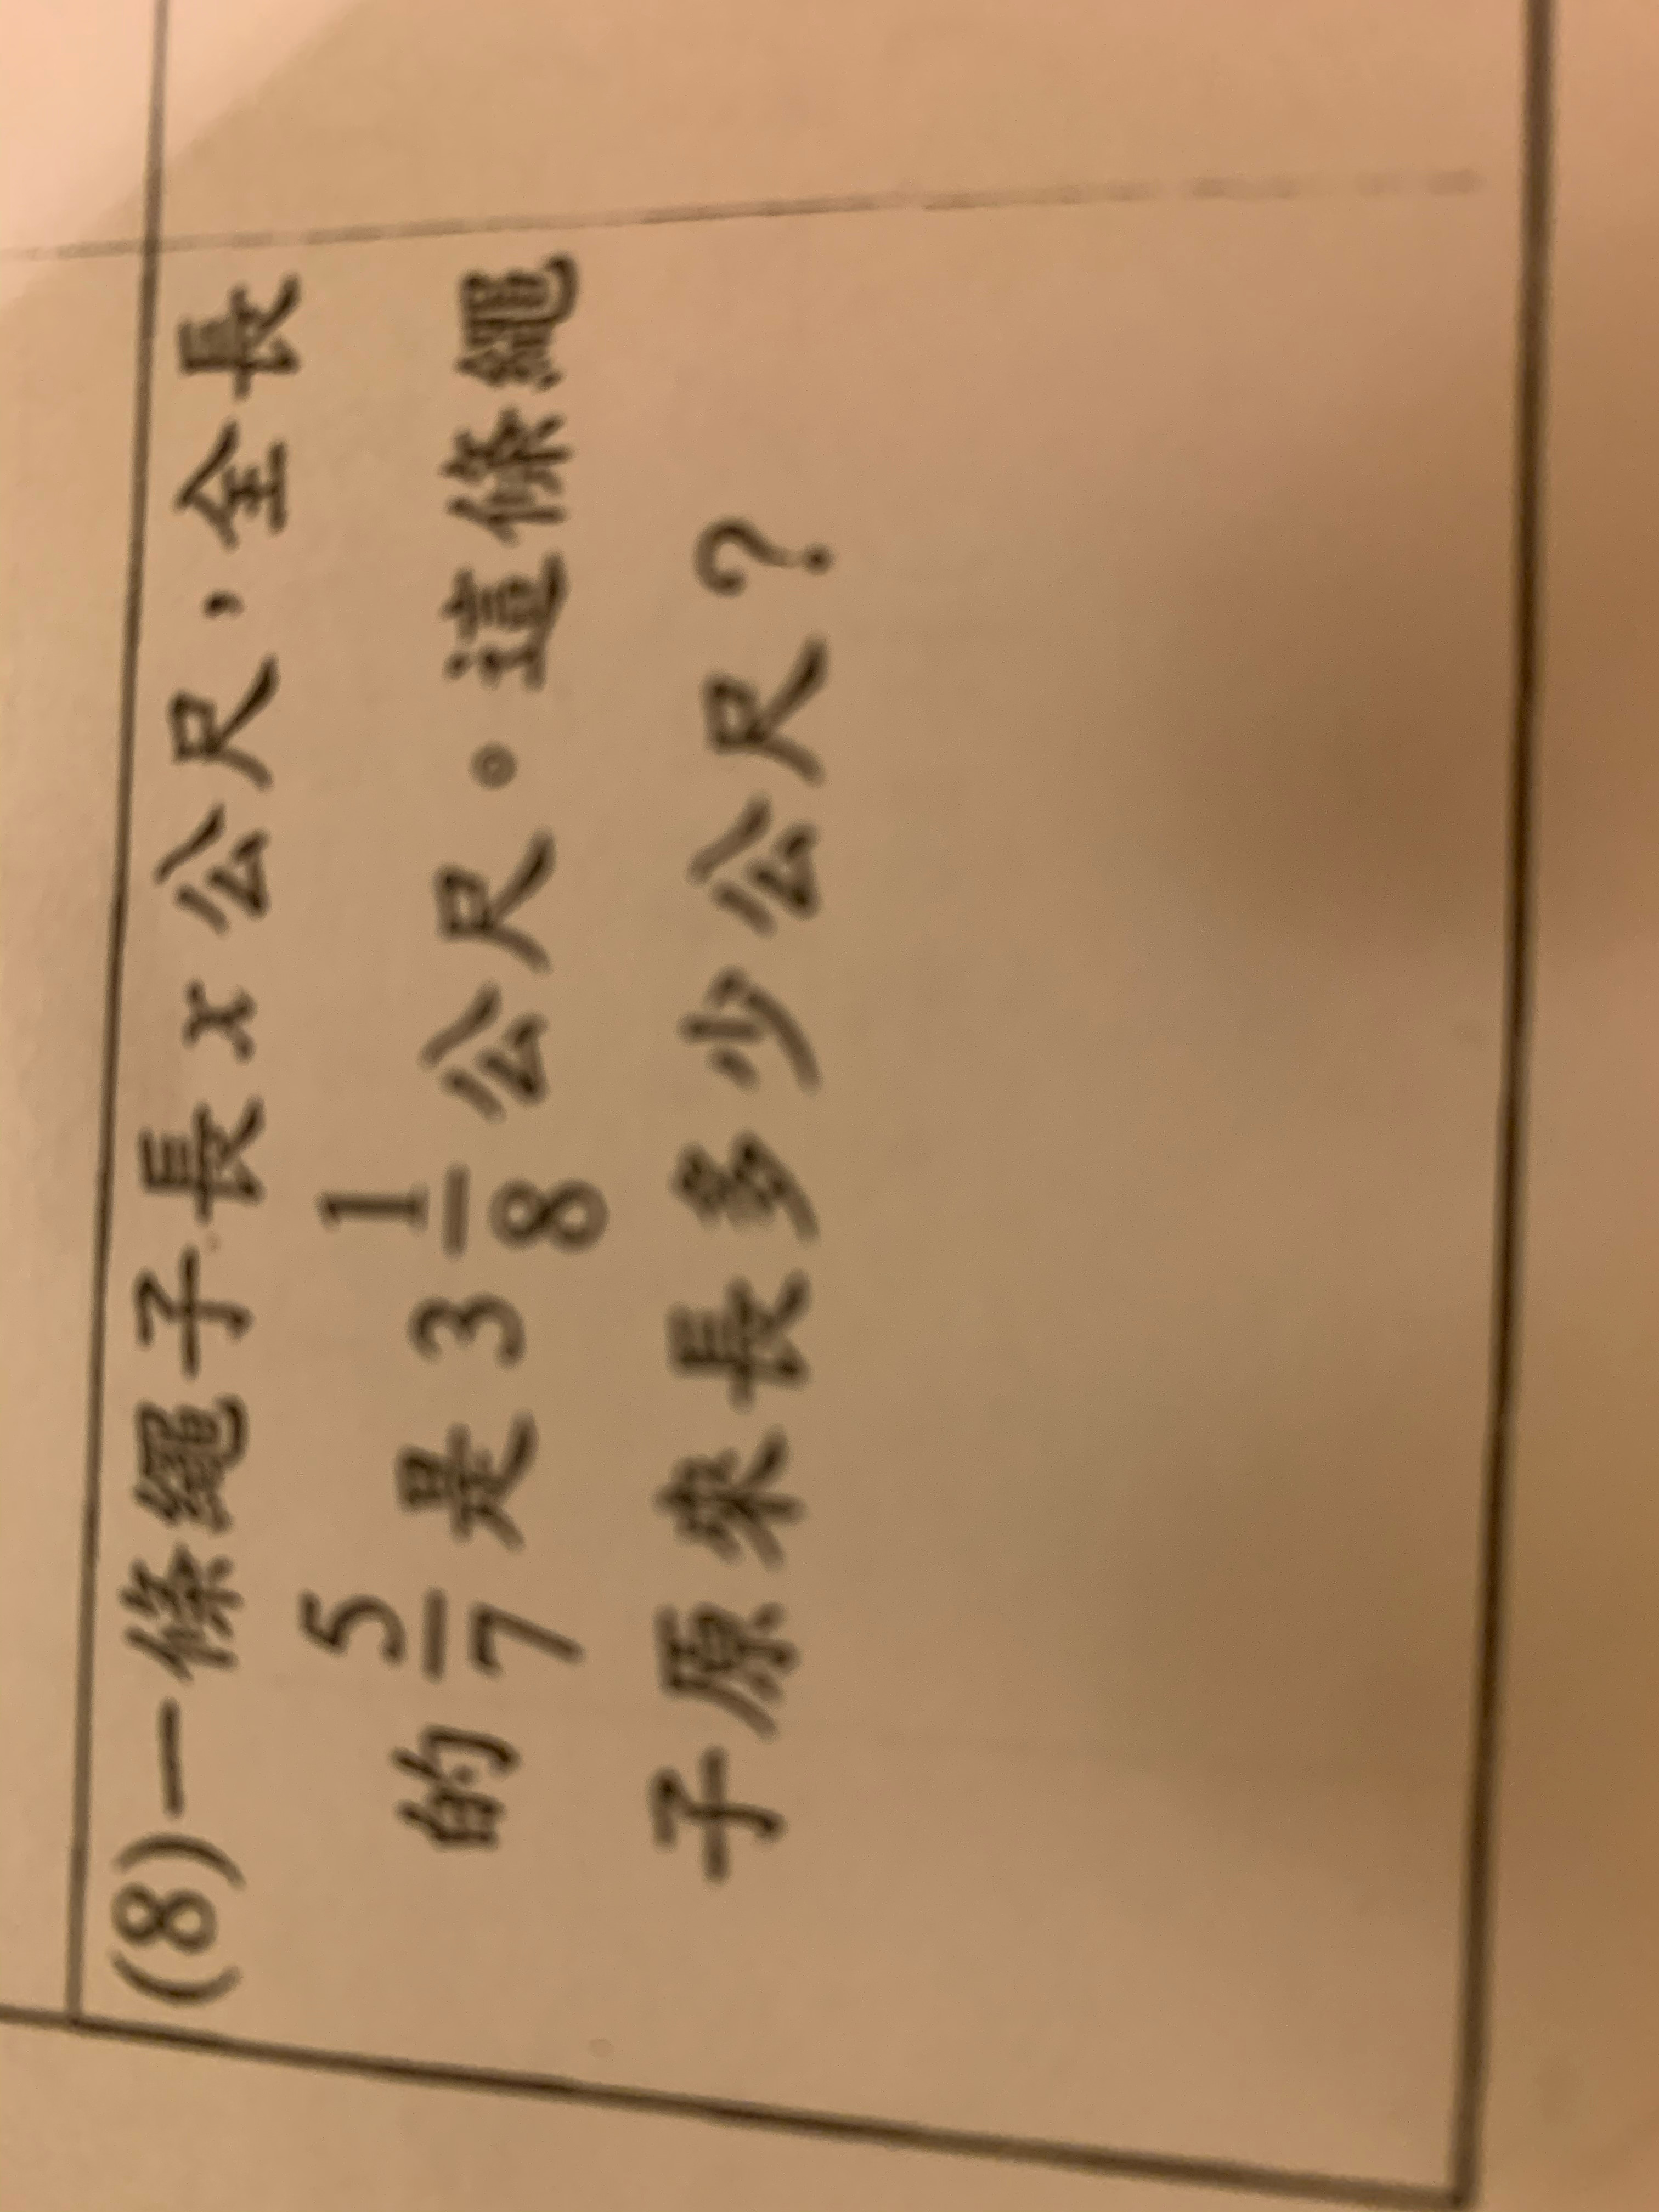 (8)一條繩子長 x 公尺，全長
的 5/7 是 3 1/8 公尺。這條繩
子原來長多少公尺？